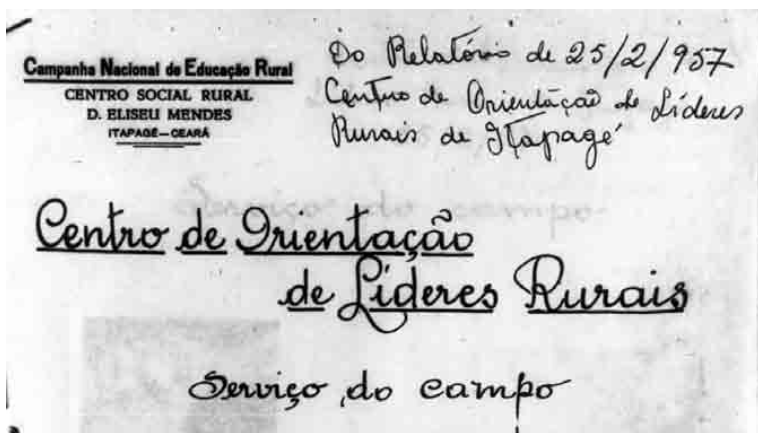 Campanha Nacional de Educação Rural
CENTRO SOCIAL RURAL
D. ELISEU MENDES
ITAPAGÉ—CEARÁ
Do Relatório de 25/2/957
Centro de Orientação de Líderes
Rurais de Itapagé
Centro de Orientação
de Líderes Rurais
Serviço do campo